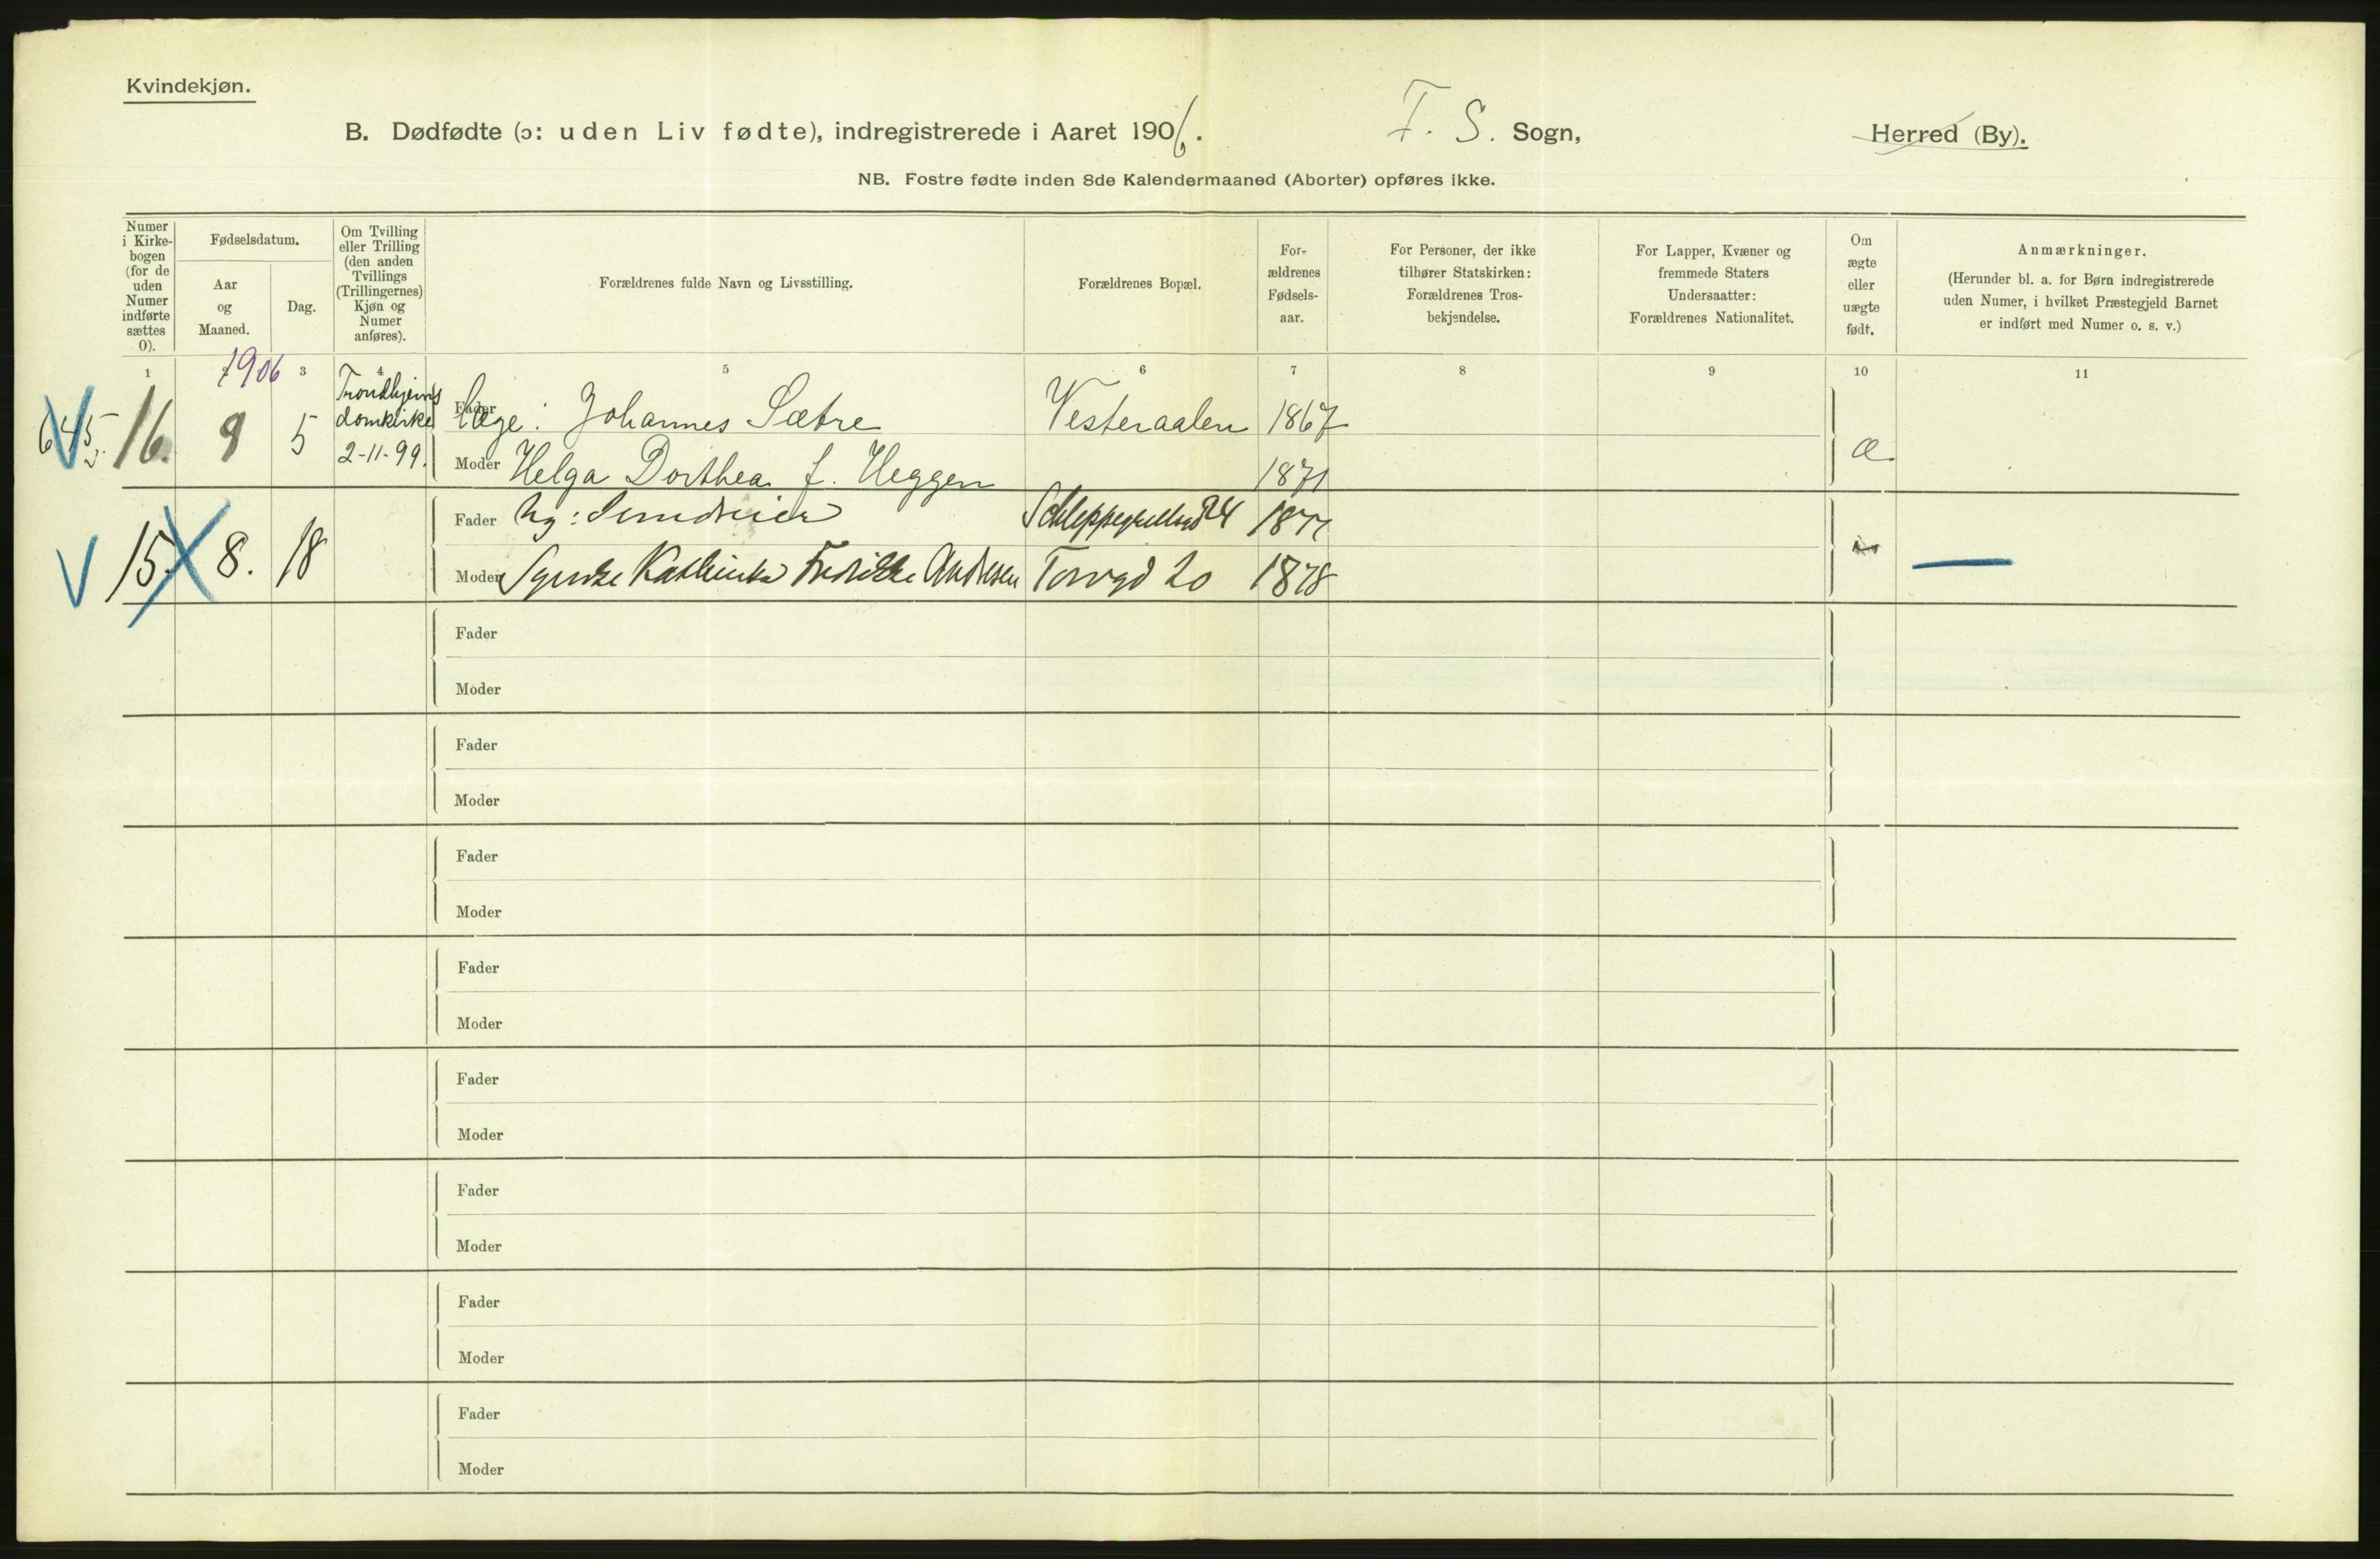 Kvindekjøn.
B. Dødfødte (ɔ: uden Liv fødte), indregistrerede i Aaret 1906. F. S. Sogn, Herred (By).
NB. Fostre fødte inden 8de Kalendermaaned (Aborter) opføres ikke.
Numer
i Kirke-
bogen
(for de
uden
Numer
indførte
sættes
0).
Fødselsdatum.
Aar
og
Maaned.
Dag.
Om Tvilling
eller Trilling
(den anden
Tvillings
(Trillingernes)
Kjøn og
Numer
anføres).
Forældrenes fulde Navn og Livsstilling.
Forældrenes Bopæl.
For-
ældrenes
Fødsels-
aar.
For Personer, der ikke
tilhører Statskirken:
Forældrenes Tros-
bekjendelse.
For Lapper, Kvæner og
fremmede Staters
Undersaatter:
Forældrenes Nationalitet.
Om
ægte
eller
uægte
født.
Anmærkninger.
(Herunder bl. a. for Børn indregistrerede
uden Numer, i hvilket Præstegjeld Barnet
er indført med Numer o. s. v.)
1 3 4 5 6 7 8 9 10 11
1906
Trondhjems
domkirke
2-11-99.
16. 9 5 Fader Læge: Johannes Sætre Vesteraalen 1867
Moder Helga Dorthea f. Heggen 1871 æ.
15. 8. 18 Fader Schleppegrellsgd 24
Moder Fredrikke Andresen Torvgd 20 1878
Fader
Moder
Fader
Moder
Fader
Moder
Fader
Moder
Fader
Moder
Fader
Moder
Fader
Moder
Fader
Moder